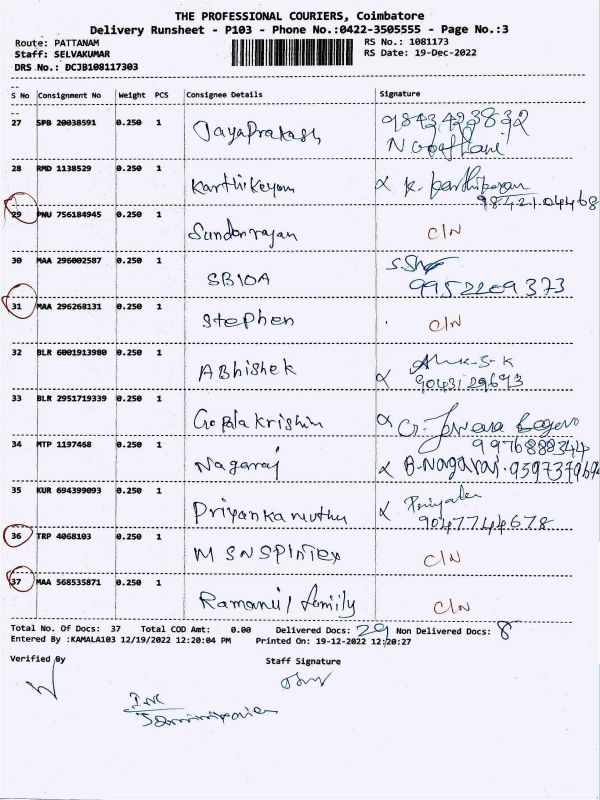 THE PROFESSIONAL COURIERS, Coimbatore
Delivery Runsheet - P103 - Phone No.:0422-3505555 - Page No.:3
Route: PATTANAM RS No.: 1081173
Staff: SELVAKUMAR RS Date: 19-Dec-2022
DRS No.: DCJB108117303
S No Consignment No Weight PCS Consignee Details Signature
27 SPB 20038591 0.250 1 Jayaprakash 9843423832
28 RMD 1138529 0.250 1 Karthikeyan K. Parthiparan
9842104468
29 PNU 756184945 0.250 1 Sundarrajan C/N
30 MAA 296002587 0.250 1 SBIOA
9952209373
31 MAA 296268131 0.250 1 Stephen C/N
32 BLR 6001913980 0.250 1 Abhishek
9043129693
33 BLR 2951719339 0.250 1 Gopala Krishn
9976888344
34 MTP 1197468 0.250 1 Nagaraj B. Nagaraj.
35 KUR 694399093 0.250 1 Priyanka muthu
9047744678
36 TRP 4068103 0.250 1 M S N SPINTEX C/N
37 MAA 568535871 0.250 1 family C/N
Total No. Of Docs: 37 Total COD Amt: 0.00 Delivered Docs: 29 Non Delivered Docs: 8
Entered By :KAMALA103 12/19/2022 12:20:04 PM Printed On: 19-12-2022 12:20:27
Verified By Staff Signature